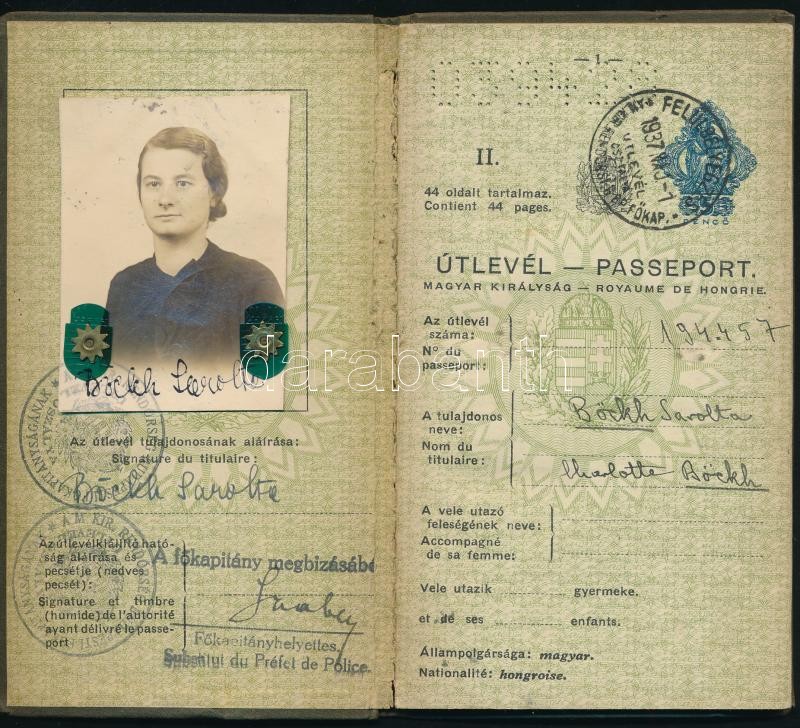 Böckh Sarolta
Az útlevél tulajdonosának aláírása:
Signature du titulaire:
Böckh Sarolta
Az útlevélkiállító ható-
ság aláírása és
pecsétje (nedves
pecsét):
A főkapitány megbízásábó
Signature et timbre
(humide) de l'autorité
ayant délivré le passe-
port
Főkapitányhelyettes.
Substitut du Préfet de Police.
— 1. —
II.
44 oldalt tartalmaz.
Contient 44 pages.
1937
ÚTLEVÉL
FŐKAP.
PENGŐ
ÚTLEVÉL — PASSEPORT.
MAGYAR KIRÁLYSÁG — ROYAUME DE HONGRIE.
Az útlevél
száma:
194.457
No du
passeport:
A tulajdonos
neve:
Böckh Sarolta
Nom du
titulaire:
Charlotte Böckh
A vele utazó
feleségének neve:
Accompagné
de sa femme:
Vele utazik gyermeke.
et de ses enfants.
Állampolgársága: magyar.
Nationalité: hongroise.
darabanth